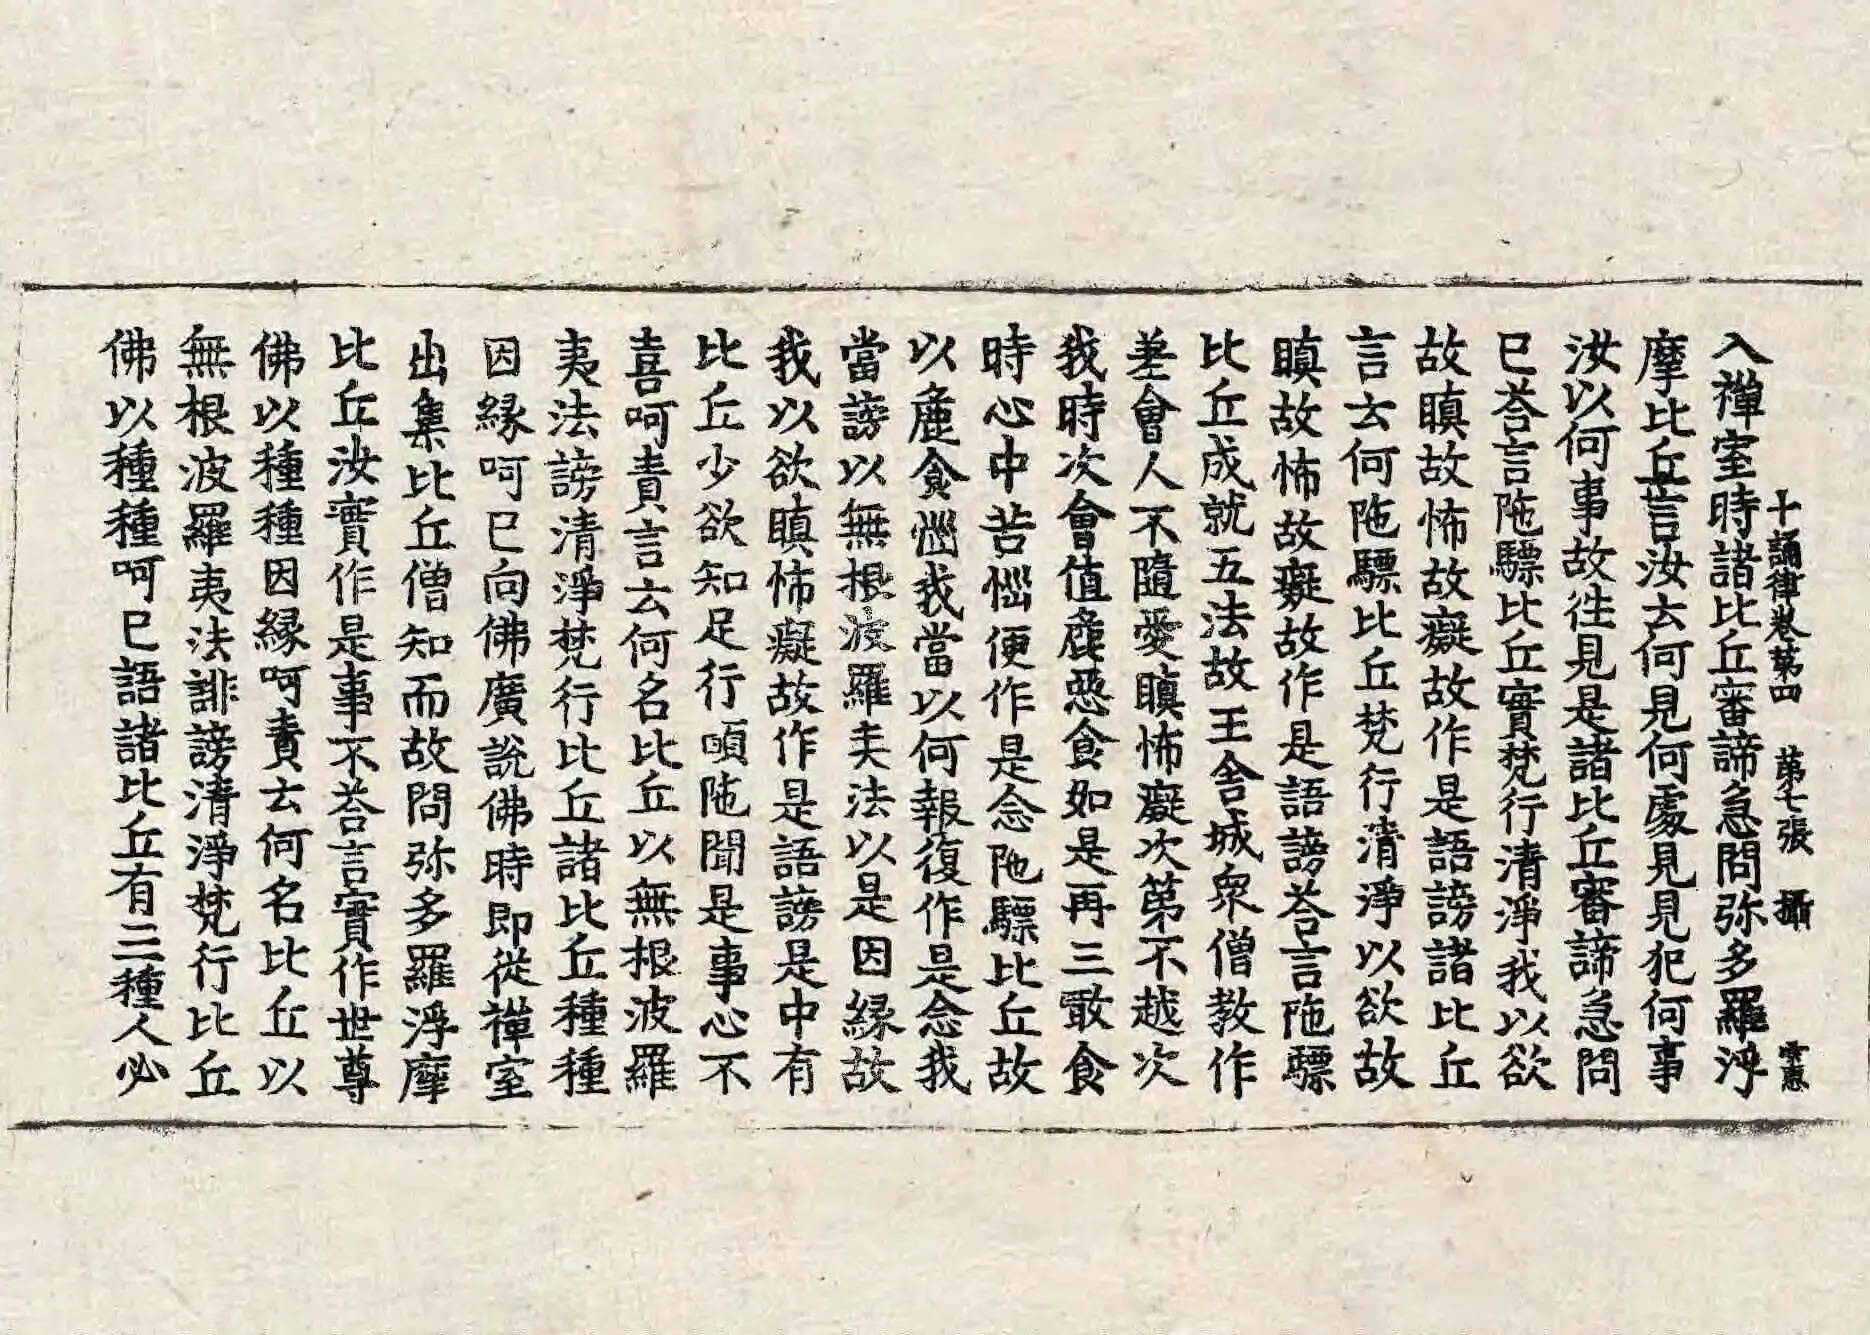 十誦律卷第四　第七張　攝　雲惠
入禪室時諸比丘審諦急問弥多羅浮
摩比丘言汝去何見何處見見犯何事
汝以何事故往見是諸比丘審諦急問
已荅言陁驃比丘實梵行清淨我以欲
故瞋故怖故癡故作是語謗諸比丘
言去何陁驃比丘梵行清淨以欲故
瞋故怖故癡故作是語謗荅言陁驃
比丘成就五法故王舍城衆僧教作
差會人不隨愛瞋怖癡次第不越次
我時次會值麁惡食如是再三敢食
時心中苦惱便作是念陁驃比丘故
以麁食惱我當以何報復作是念我
當謗以無根波羅夷法以是因縁故
我以欲瞋怖癡故作是語謗是中有
比丘少欲知足行頭陁聞是事心不
喜呵責言云何名比丘以無根波羅
夷法謗清淨梵行比丘諸比丘種種
因縁呵已向佛廣說佛時即從禪室
出集比丘僧知而故問弥多羅浮摩
比丘汝實作是事不荅言實作世尊
佛以種種因縁呵責去何名比丘以
無根波羅夷法誹謗清淨梵行比丘
佛以種種呵已語諸比丘有三種人必